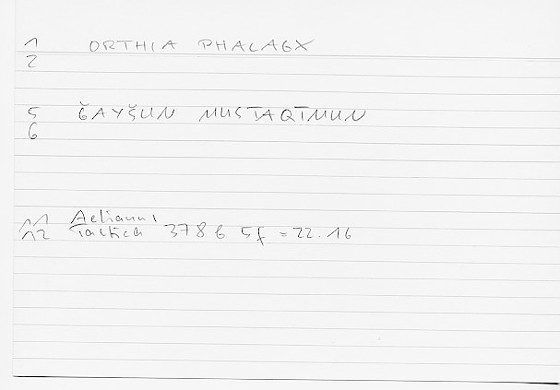 1 ORTHIA PHALAGX
2
5 ǦAYŠUN MUSTAQĪMUN
6
11 Aeliani
12 Tactica 378 b 5f = 22.16